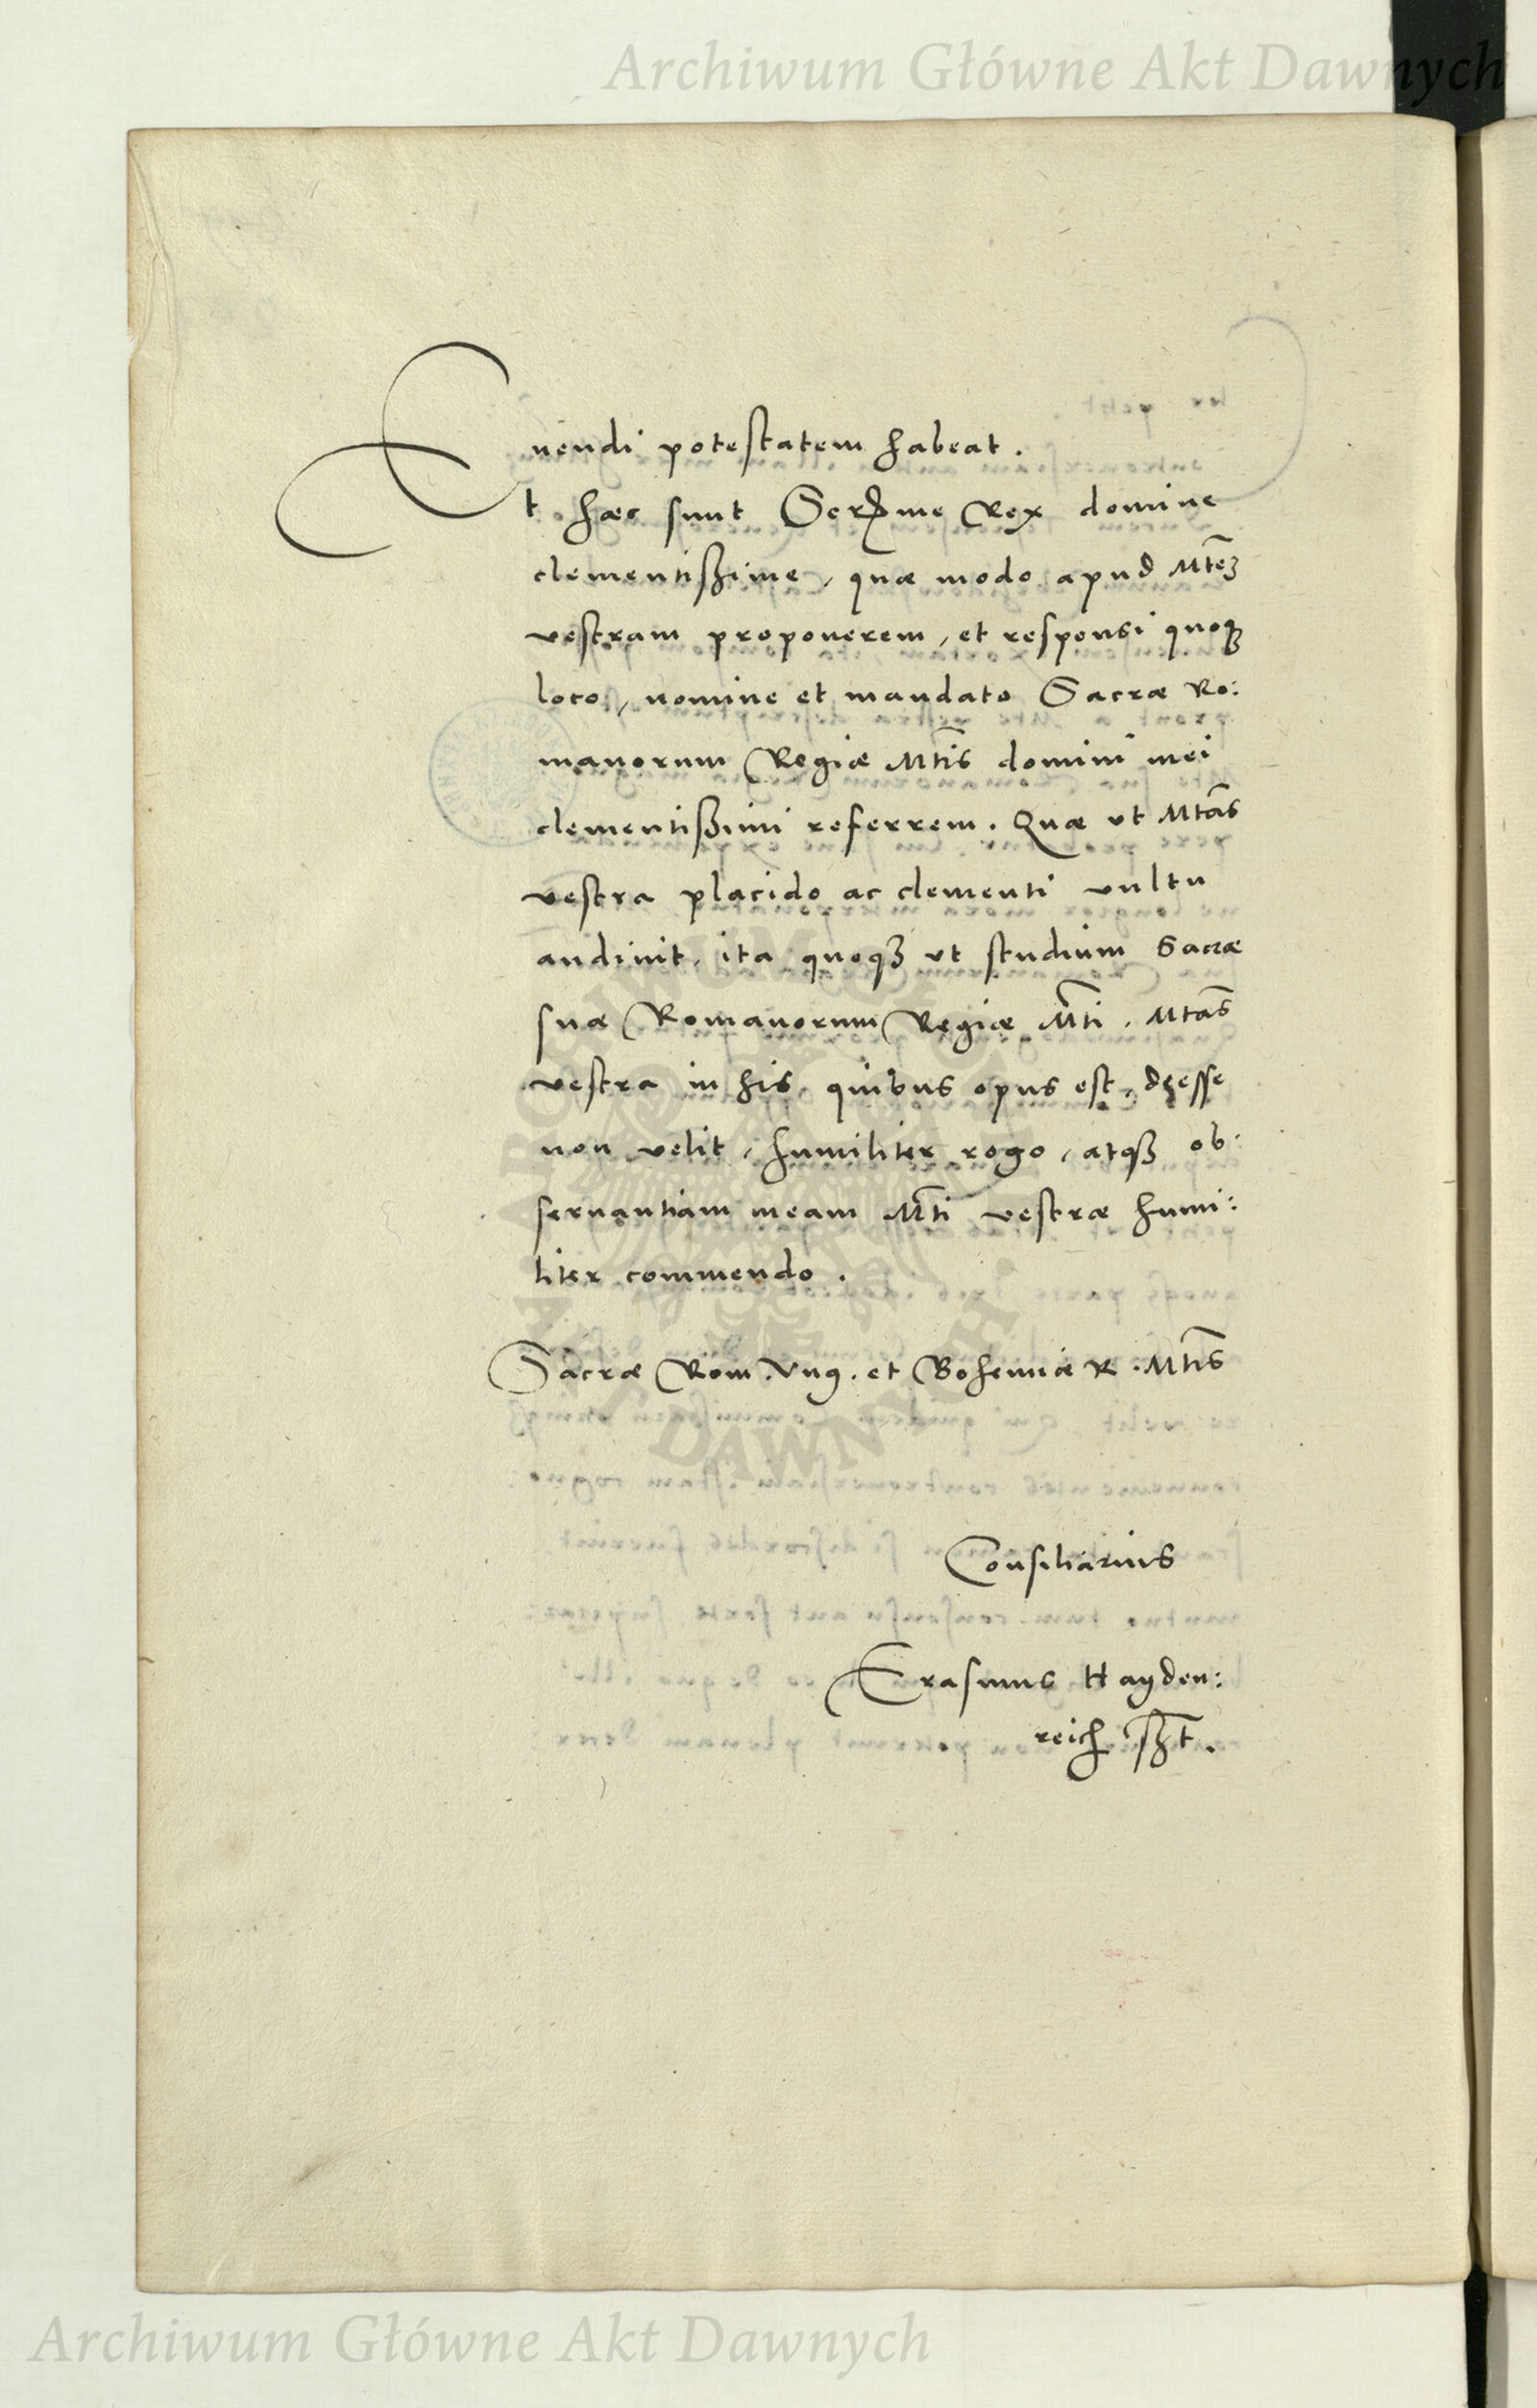 Archiwum Główne Akt Dawnych
nendi potestatem habeat.
Et hæc sunt Serme Rex domine
clementissime, quæ modo apud Mtem
vestram proponerem, et responsi quoqz
loco, nomine et mandato Sacræ Ro:
manorum Regiæ Mtis domini mei
clementissimi referrem. Quæ vt Mtas
vestra placido ac clementi vultu
audiuit, ita quoqz vt studium Sacræ
suæ Romanorum Regiæ Mti. Mtas
vestra in his, quibus opus est, deesse
non velit, humiliter rogo, atqz ob:
seruantiam meam Mti vestræ humi:
liter commendo.
Sacræ Rom. Vng. et Bohemiæ R. Mtis
Consiliarius
Erasmus Hayden:
reich
ARCHIWUM GŁÓWNE AKT DAWNYCH
Archiwum Główne Akt Dawnych